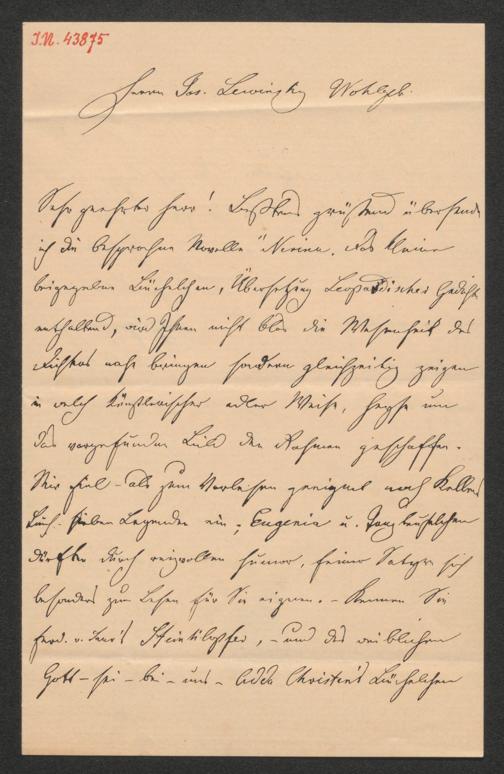 J.N. 43875
Herrn Jos. Lewinsky Wohlgeb.
Sehr geehrter Herr! Bestens grüßend übersende
ich die besprochne Novelle "Nerina. Das kleine
beigegebne Büchelchen, Übersetzung Leopardischer Gedichte
enthaltend, wird Ihnen nicht blos die Wesenheit des
Dichters nahe bringen sondern gleichzeitig zeigen
in welch künstlerischer edler Weise, Heyse um
das vorgefundne Bild den Rahmen geschaffen.
Mir fiel – als zum Vorlesen geeignet noch Kellers
Buch. Sieben Legenden ein; Eugenia u.
dürften durch reizvollen Humor, feine Satyre sich
besonders zum Lesen für Sie eignen. – Kennen Sie
Ferd. v. Saar's Steinklopfer, – und des weiblichen
Gott – sei – bei – uns – Ada Christen's Büchelchen